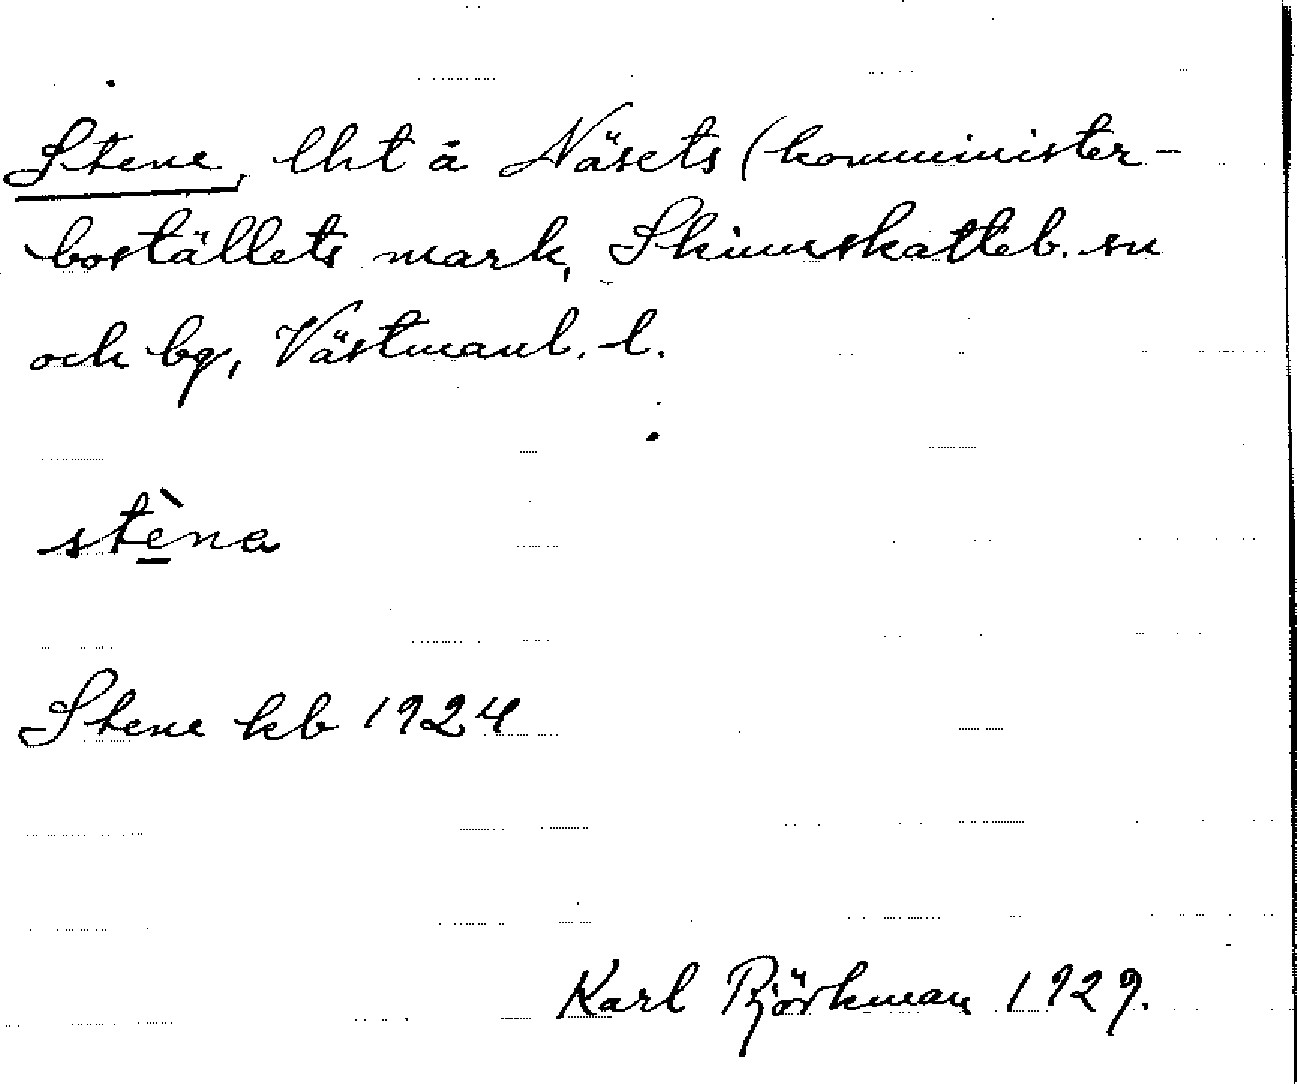 Stene, lht å Näsets (komminister-
boställets mark, Skinnskatteb. sn
och bg, Västmanl. l.
stèna
Stene kb 1924
Karl Björkman 1929.